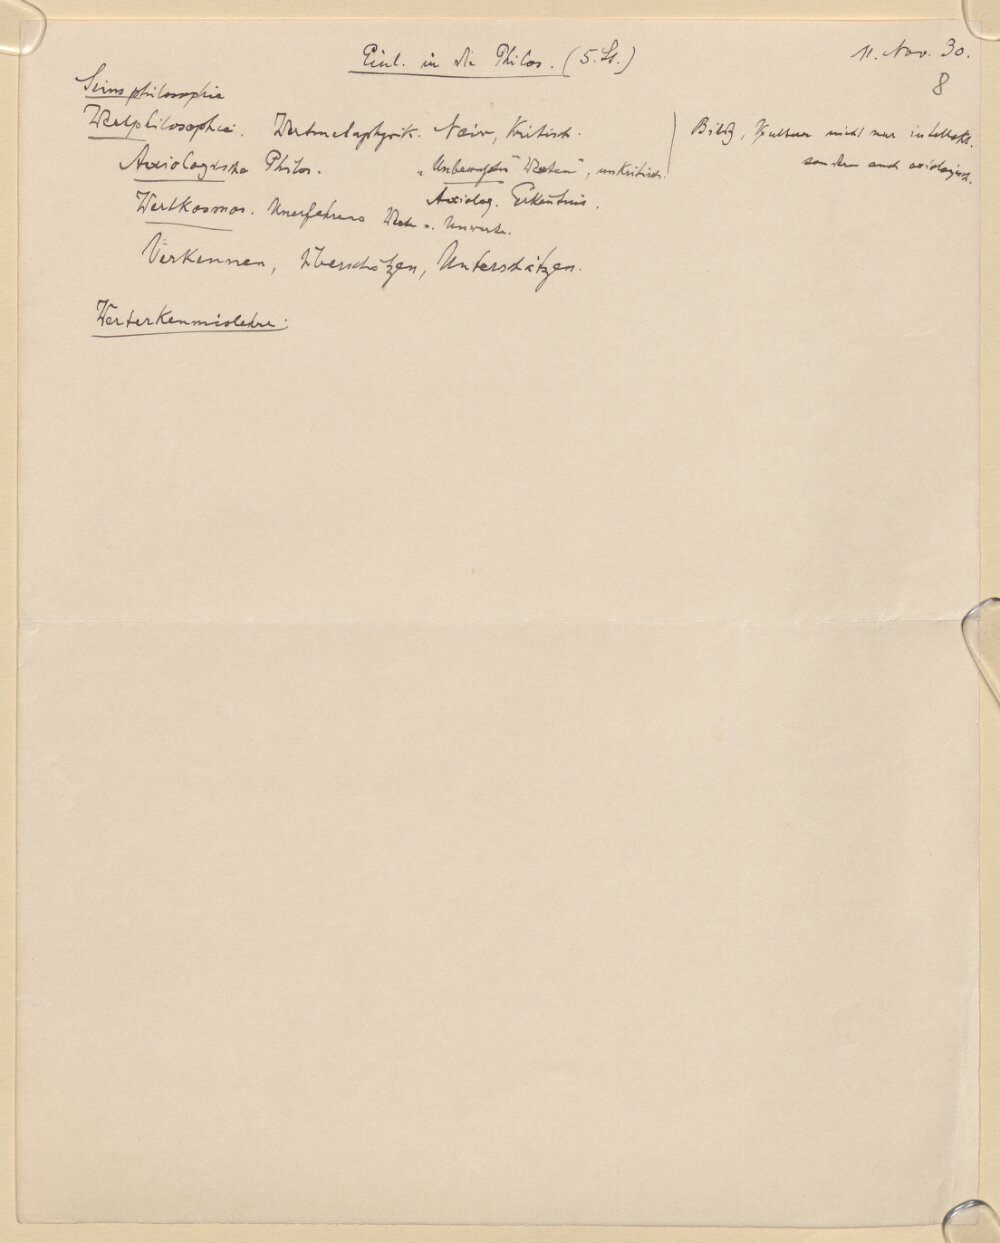 Einl. in die Philos. (5. St.)
11. Nov. 30.
8
Seinsphilosophie
Wertphilosophie. Wertmetaphysik. Naiv, Kritisch.
Bildg, Kultur nicht nur intellekt.
sondern auch axiologisch.
Axiologische Philos. „Unbewußte" Werten", unkritisch.
Axiolog. Erkentnis.
Wertkosmos. Unerfahrene Werte u. Unwerte.
Verkennen, Überschätzen, Unterschätzen.
Werterkenntnislehre.